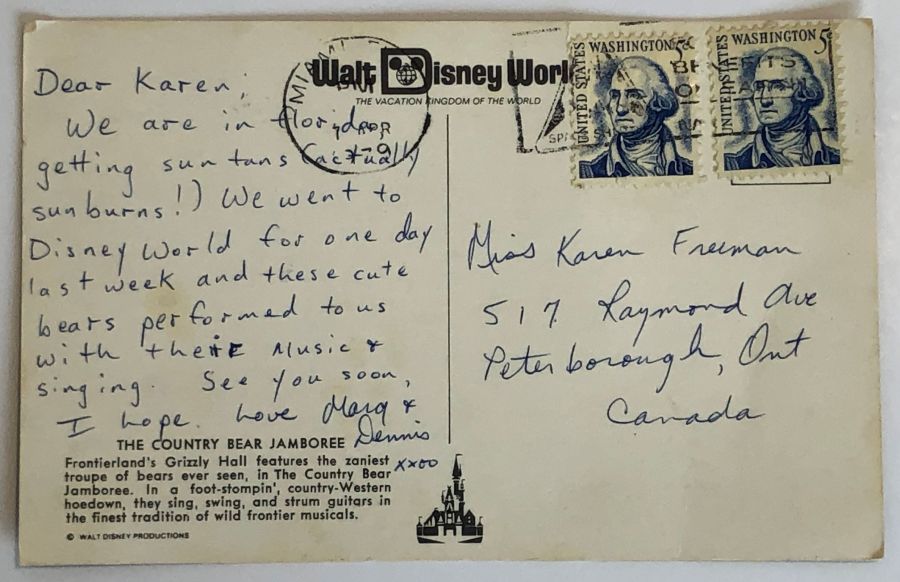 Dear Karen,
We are in Florida,
getting sun tans (actually
sunburns!) We went to
Disney World for one day
last week and these cute
bears performed to us
with their music &
singing. See you soon,
I hope. Love Marg &
Dennis
xxoo
THE COUNTRY BEAR JAMBOREE
Frontierland's Grizzly Hall features the zaniest
troupe of bears ever seen, in The Country Bear
Jamboree. In a foot-stompin', country-Western
hoedown, they sing, swing, and strum guitars in
the finest tradition of wild frontier musicals.
© WALT DISNEY PRODUCTIONS
Walt Disney World
THE VACATION KINGDOM OF THE WORLD
MIAMI
APR
UNITED STATES
WASHINGTON 5¢
UNITED STATES
WASHINGTON 5¢
Miss Karen Freeman
517 Raymond Ave
Peterborough, Ont
Canada